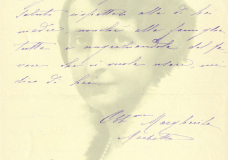 Saluti rispettosi alla di lei
madre, nonché alla famiglia
tutta e ringraziandola del fa-
vore che mi vuole usare, mi
creda di lei
Obb.ma Margherita